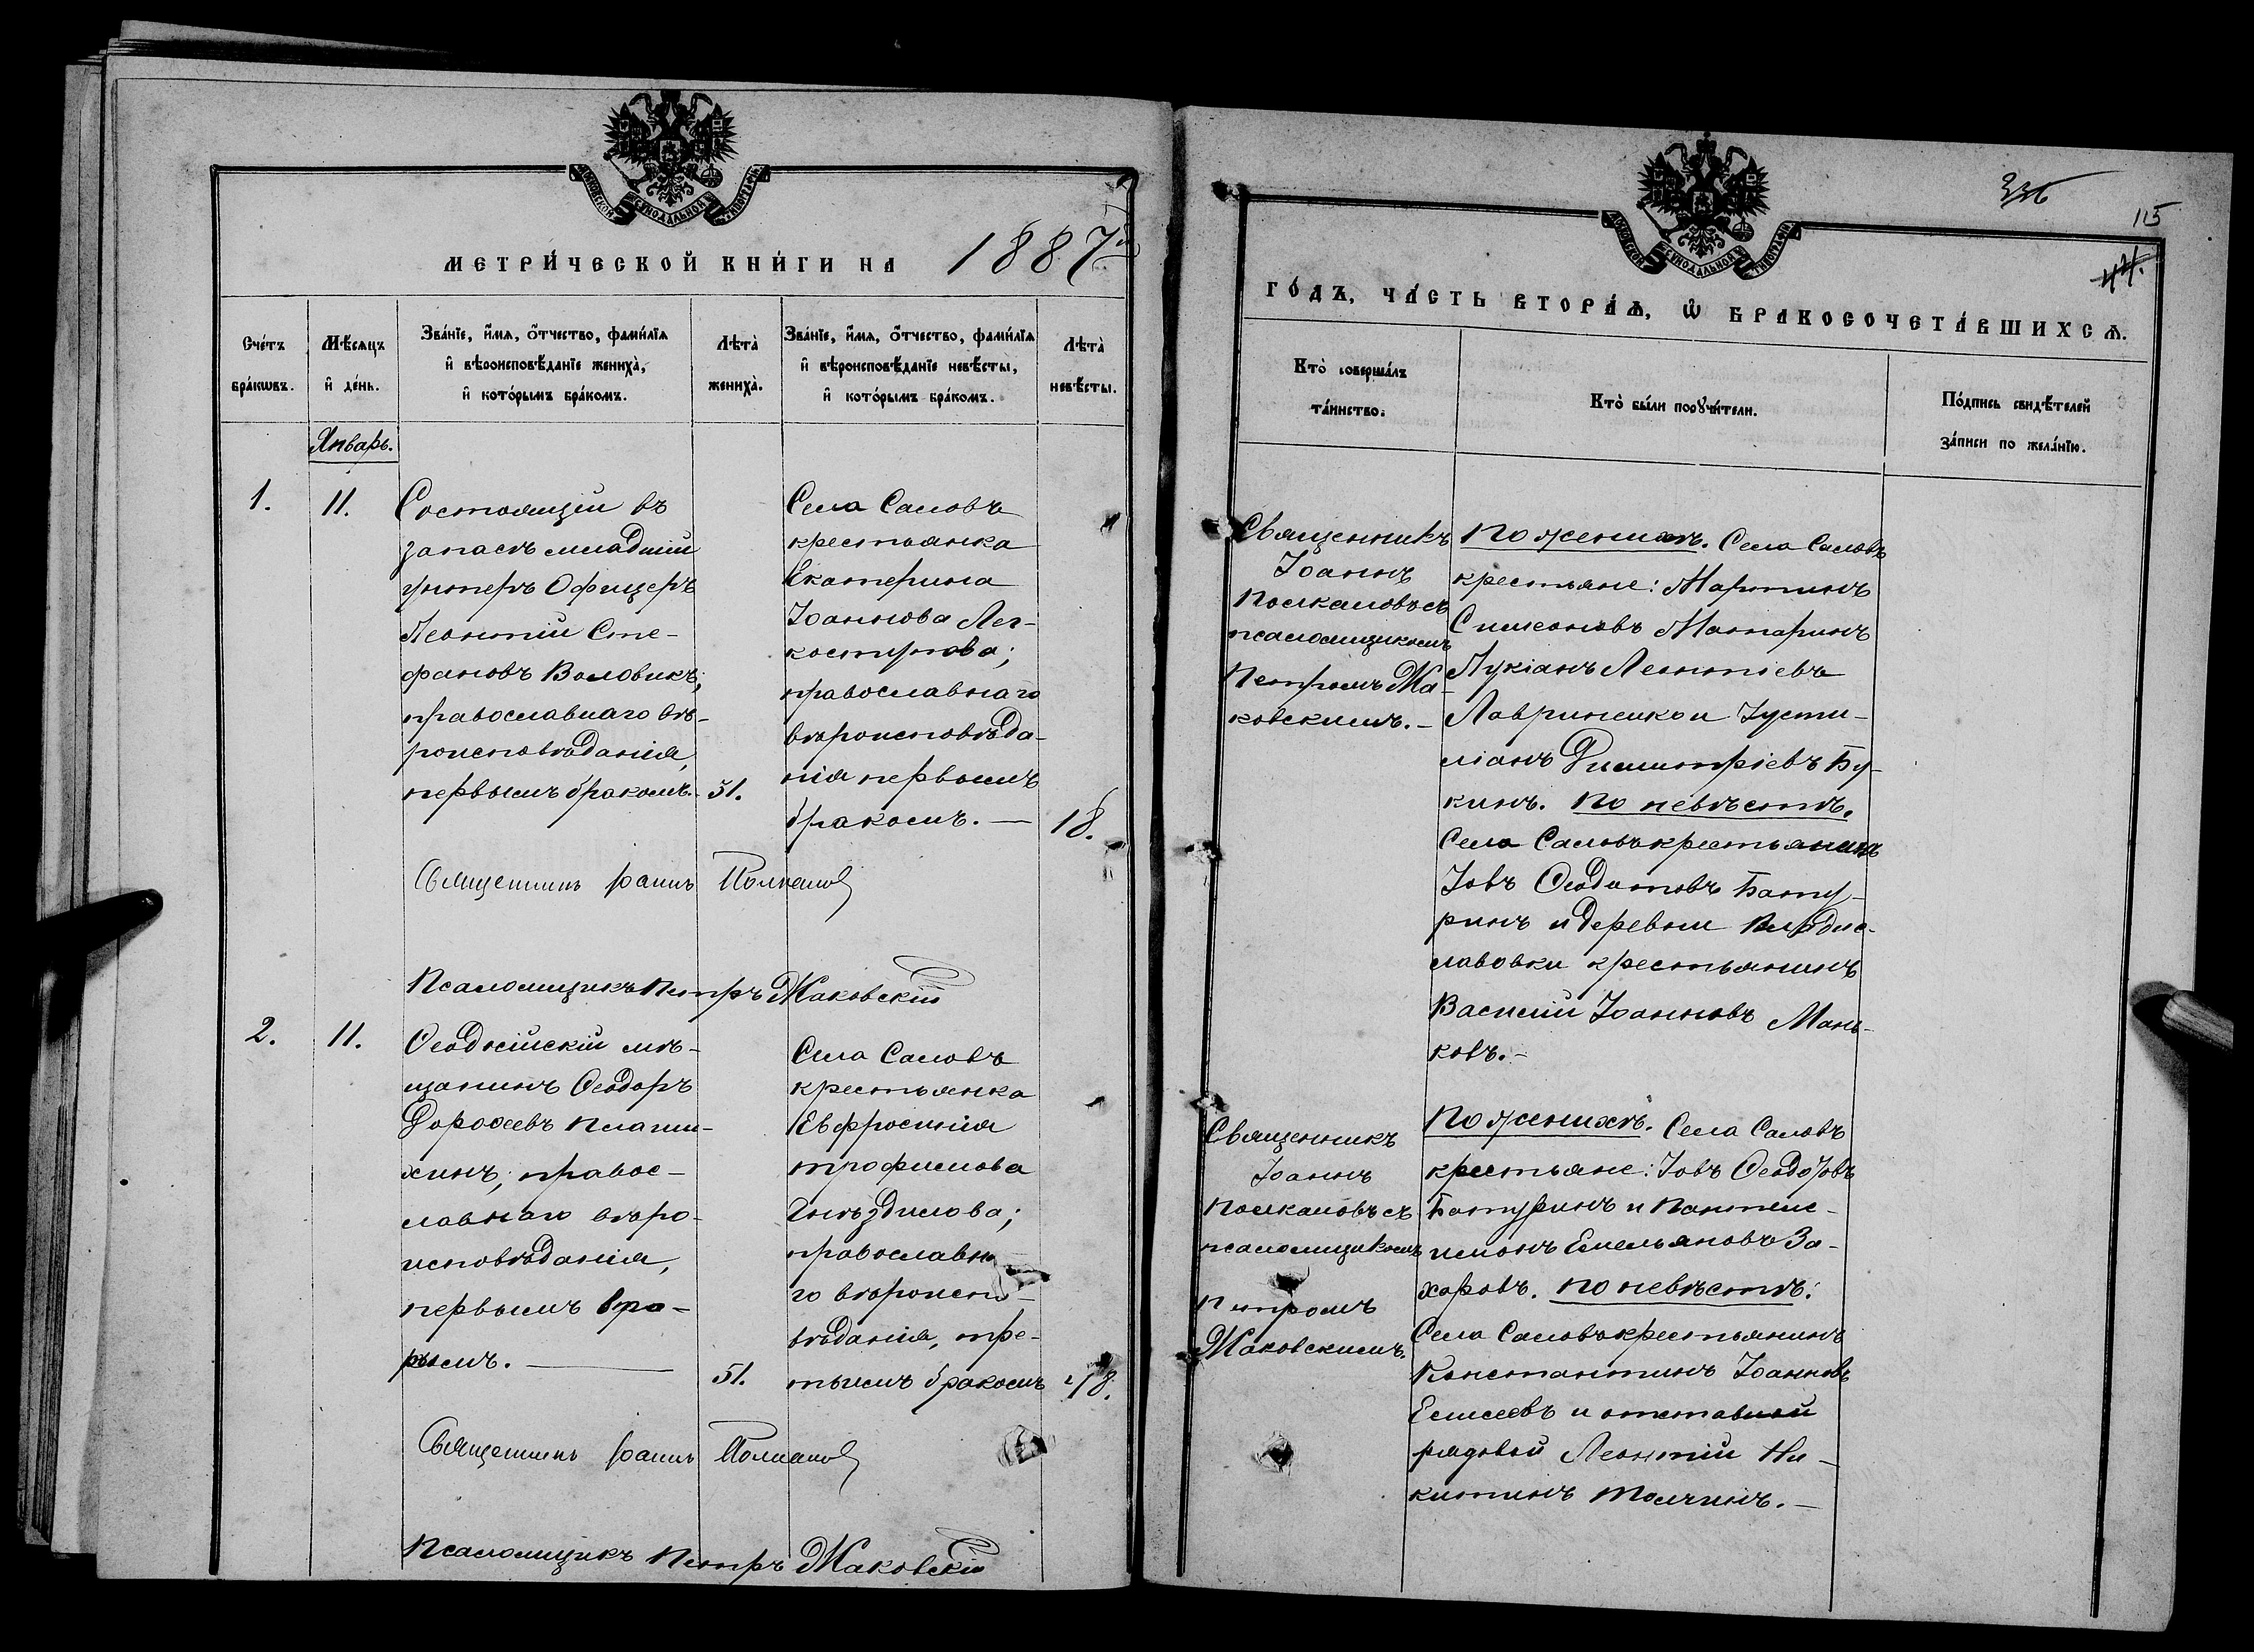 МЕТРИ́ЧЕСКОЙ КНИ́ГИ НА 1887й
Сче́тъ бра́кѡвъ.
Мѣ́сяцъ и҆ де́нь.
Зва́нїе, и҆́мѧ, ѻ҆́тчество, фами́лїѧ
и҆ вѣроисповѣ́данїе жениха̀,
и҆ кото́рымъ бра́комъ.
Лѣта̀ жениха̀.
Зва́нїе, и҆́мѧ, ѻ҆́тчество, фами́лїѧ
и҆ вѣроисповѣ́данїе невѣ́сты,
и҆ кото́рымъ бра́комъ.
Лѣта̀ невѣ́сты.
Январь.
1.
11.
Состоящій въ
запасѣ младшій
унтеръ Офицеръ
Леонтій Сте-
фановъ Воловикъ;
православнаго вѣ-
роисповѣданія,
первымъ бракомъ.
31.
Села Саловъ
крестьянка
Екатерина
Іоаннова Лег-
коступова;
православнаго
вѣроисповѣда-
нія первымъ
бракомъ. —
18.
Священникъ Іоаннъ Полкановъ
Псаломщикъ Петръ Маковскій
2.
11.
Ѳеодосійскій мѣ-
щанинъ Ѳеодоръ
Дороѳеевъ
хинъ; правос-
лавнаго вѣро-
исповѣданія,
первымъ
51.
Села Саловъ
крестьянка
Евфросинія
Трофимова
Гнѣздилова;
православна
го вѣроиспо-
вѣданія, тре-
тьимъ бракомъ
48.
Священникъ Іоаннъ Полкановъ
Псаломщикъ Петръ Маковскій
115
ГО́ДЪ, ЧА́СТЬ ВТОРА́Ѧ, Ѽ БРАКОСОЧЕТА́ВШИХСѦ.
Кто̀ соверша́лъ та́инство.
Кто̀ бы́ли порꙋчи́тели.
По́дпись свидѣ́телей
за́писи по жела́нїю.
Священникъ
Іоаннъ
Полкановъ съ
псаломщикомъ
Петромъ Ма-
ковскимъ. —
По женихѣ. Села Саловъ
крестьяне: Мартинъ
Симеоновъ Матаринъ
Лукіанъ Леонтіевъ
Лавриненко и Іусти-
ніанъ Димитріевъ Бу-
кинъ. По невѣстѣ.
Села Саловъ крестьянинъ
Іовъ Ѳеодотовъ Бату-
ринъ и деревни Владис-
лавовки крестьянинъ
Василій Іоанновъ Мань-
ковъ. —
Священникъ
Іоаннъ
Полкановъ съ
псаломщикомъ
Петромъ
Маковскимъ.
По женихѣ. Села Саловъ
крестьяне: Іовъ Ѳеодотовъ
Батуринъ и Пантеле-
имонъ Емельяновъ За-
харовъ. По невѣстѣ:
Села Саловъ крестьянинъ
Константинъ Іоанновъ
Елисеевъ и отставной
рядовой Леонтій Ни-
китинъ Толчинъ. —